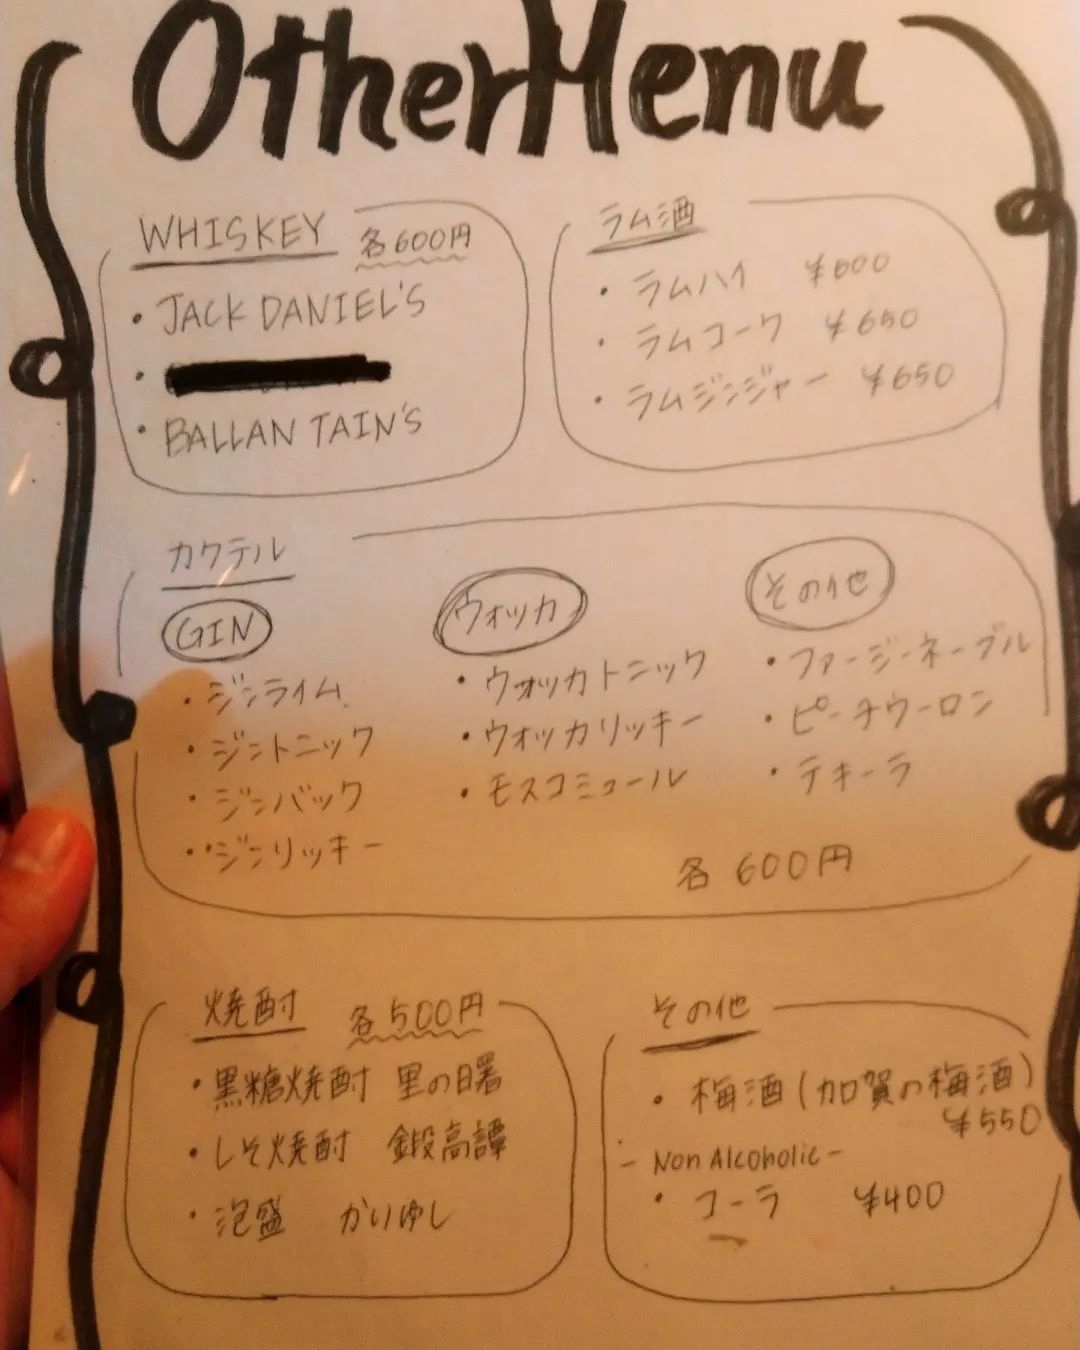 Other Menu
WHISKEY 各600円
・JACK DANIEL'S
・BALLAN TAIN'S
ラム酒
・ラムハイ ¥600
・ラムコーク ¥650
・ラムジンジャー ¥650
カクテル
GIN
・ジンライム
・ジントニック
・ジンバック
・ジンリッキー
ウォッカ
・ウォッカトニック
・ウォッカリッキー
・モスコミュール
その他
・ファージーネーブル
・ピーチウーロン
・テキーラ
各600円
焼酎 各500円
・黒糖焼酎 里の曙
・しそ焼酎 鍛高譚
・泡盛 かりゆし
その他
・梅酒(加賀の梅酒)
¥550
- Non Alcoholic -
・コーラ ¥400